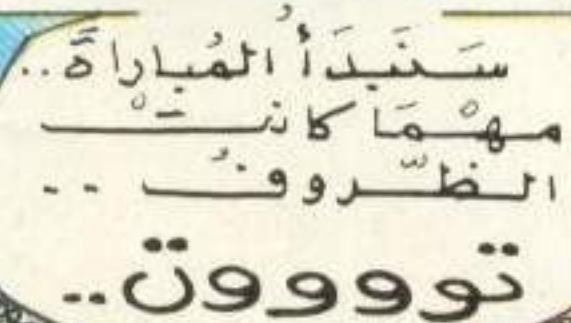 سَنَبدَأُ المُباراةَ..
مهْمَا كانتْ
الظّروفُ ..
توووووت..